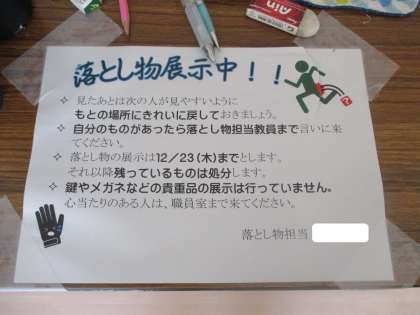 Ain
落とし物展示中！！
✧ 見たあとは次の人が見やすいように
もとの場所にきれいに戻しておきましょう。
✧ 自分のものがあったら落とし物担当教員まで言いに来
てください。
✧ 落とし物の展示は12／23（木）までとします。
それ以降残っているものは処分します。
✧ 鍵やメガネなどの貴重品の展示は行っていません。
心当たりのある人は、職員室まで来てください。
落とし物担当